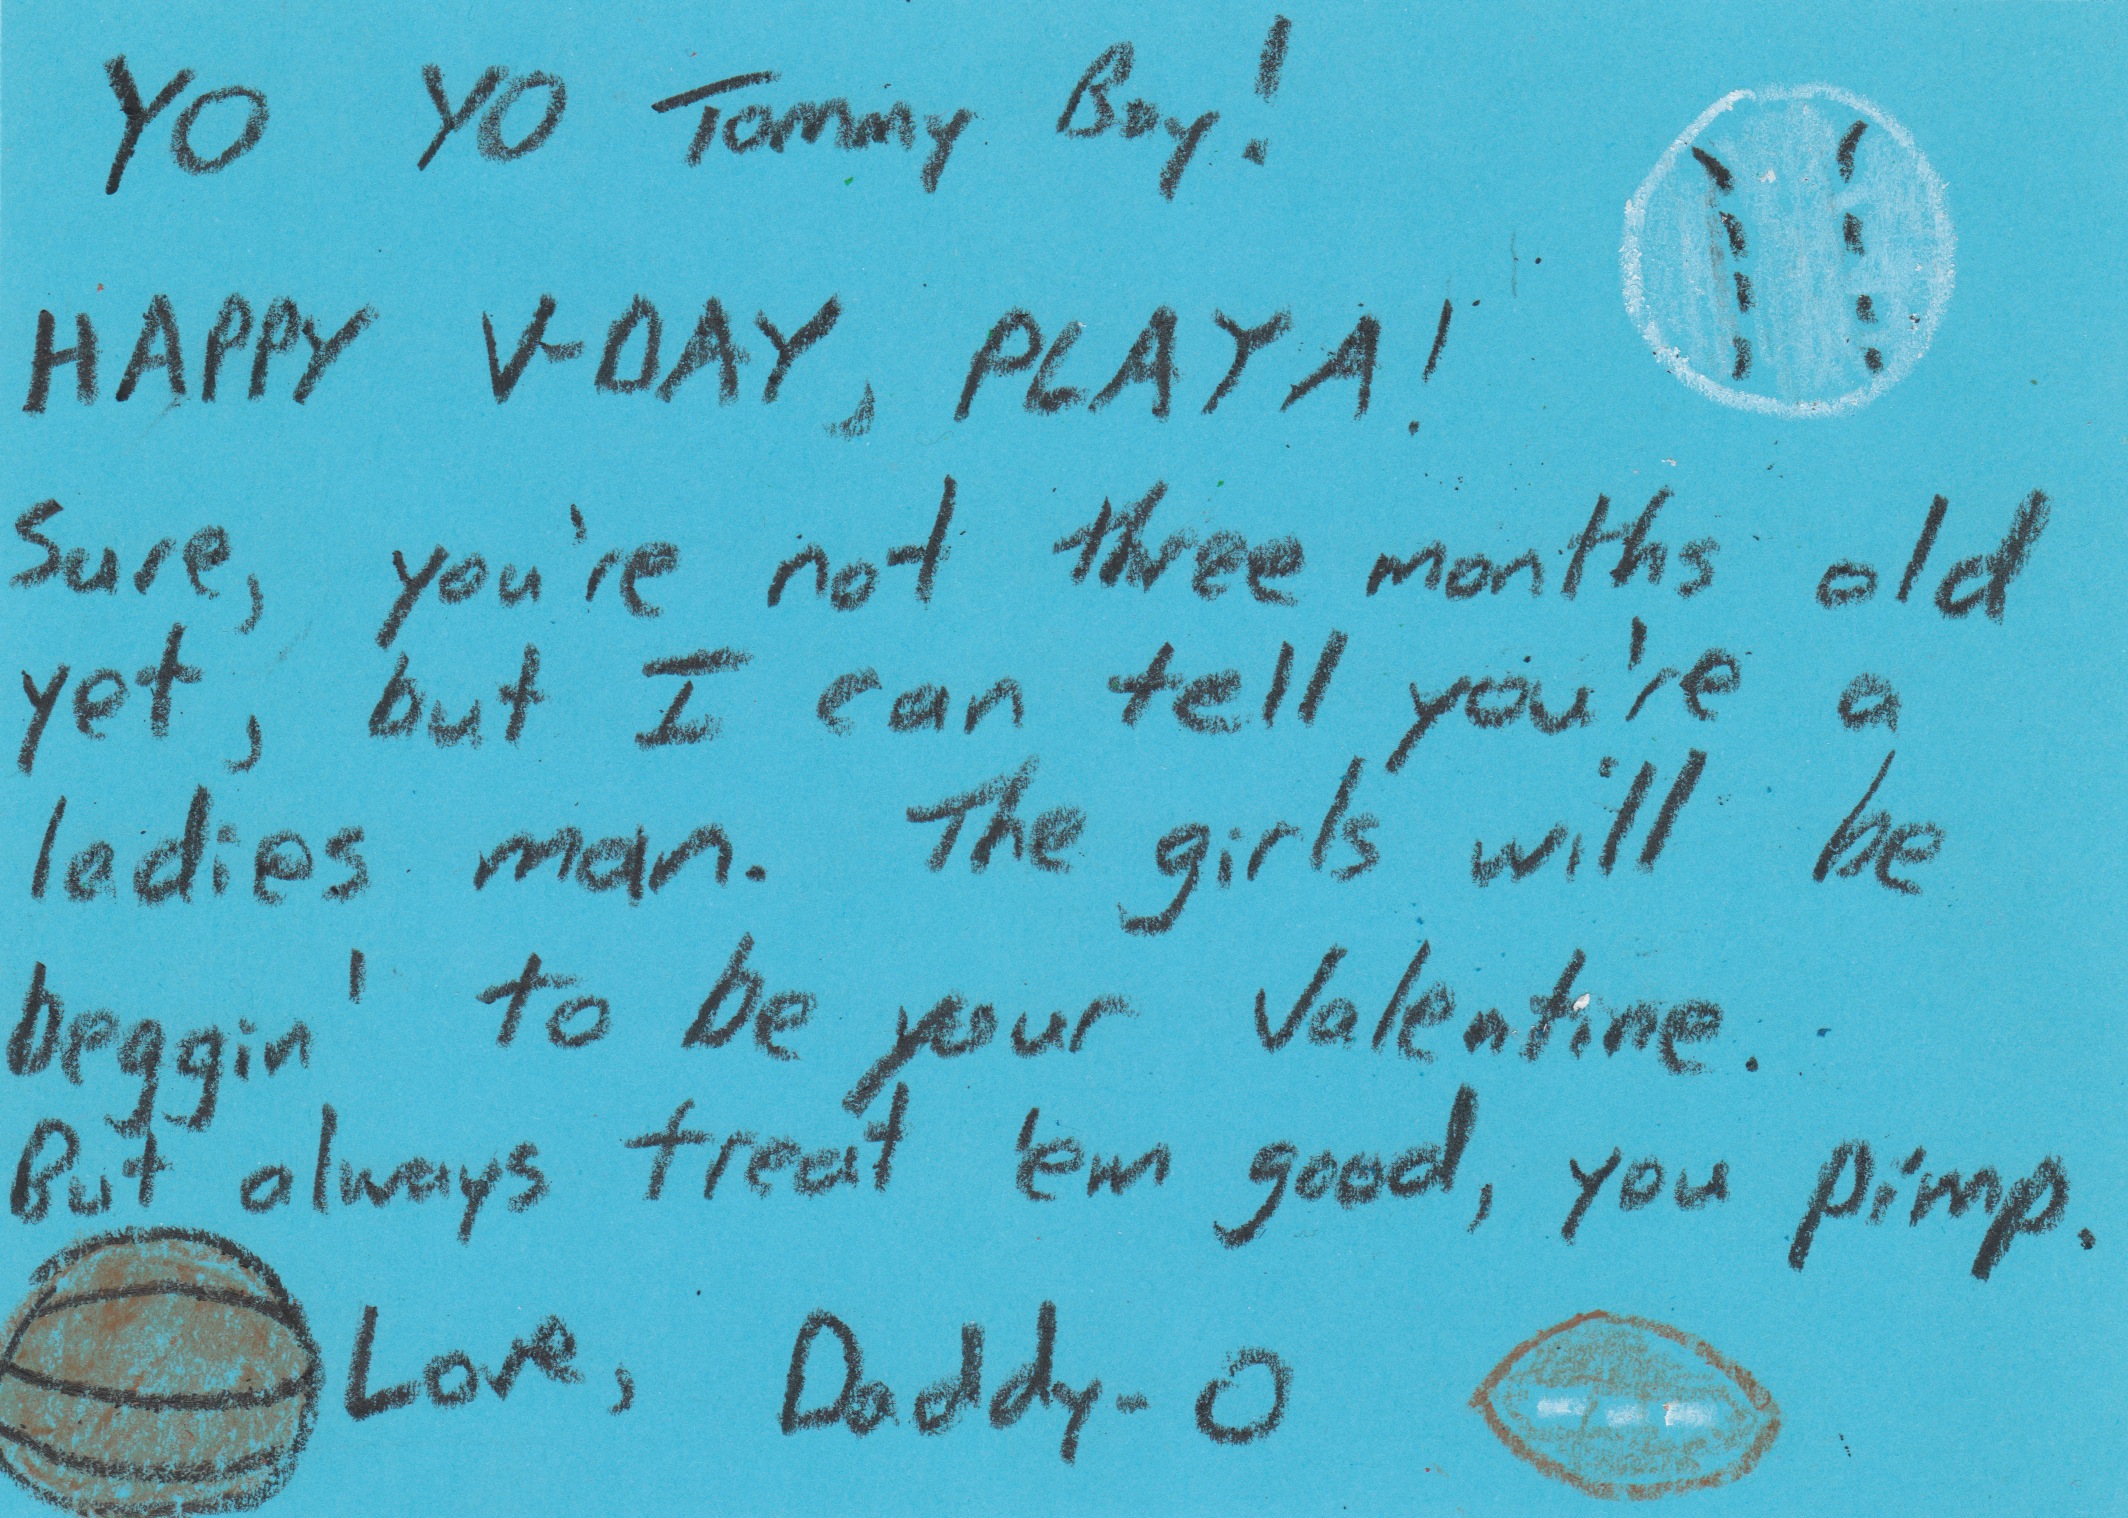 YO YO Tommy Boy!
HAPPY V-DAY, PLAYA!
Sure, you're not three months old
yet, but I can tell you're a
ladies man. The girls will be
beggin' to be your Valentine.
But always treat 'em good, you pimp.
Love, Daddy-O